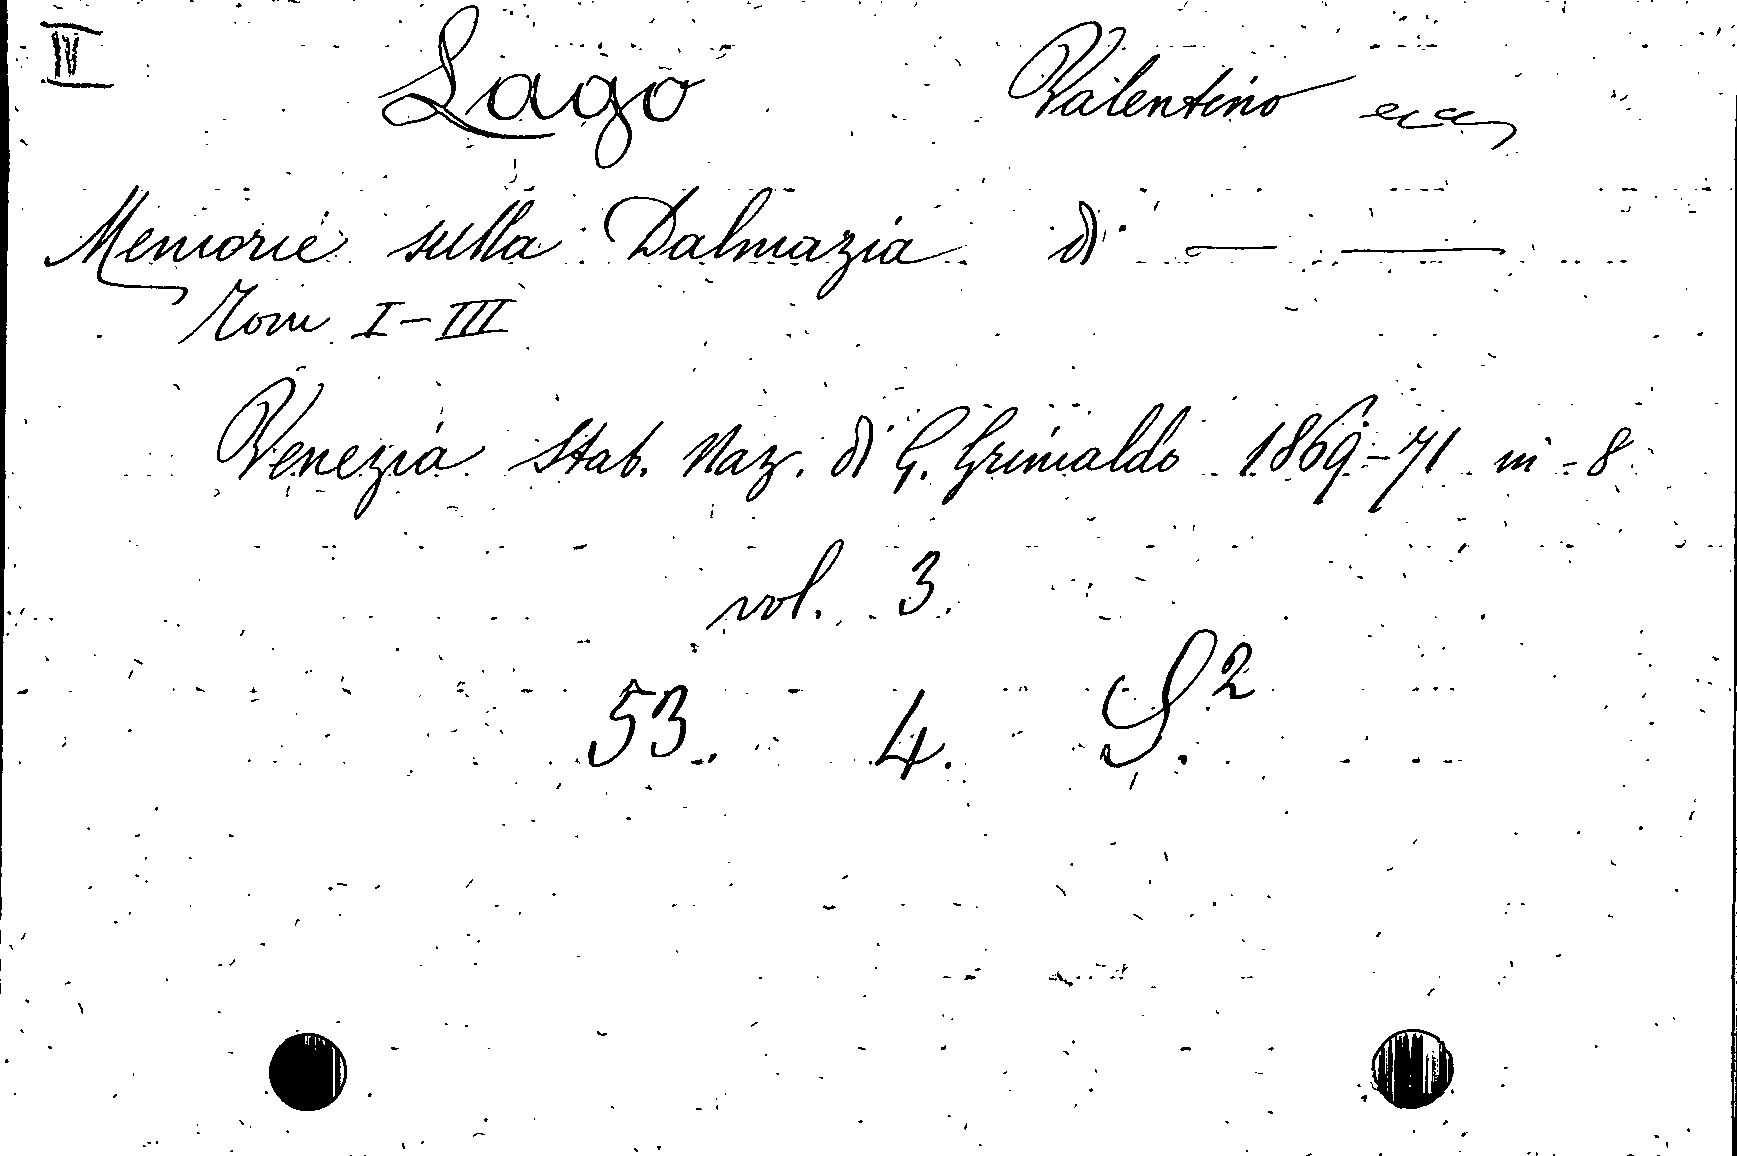 IV
Lago Valentino
Memorie sulla Dalmazia di — —
Tom I-III
Venezia Stab. Naz. di G. Grimaldo 1869-71 in-8
vol. 3.
53. 4. S.²